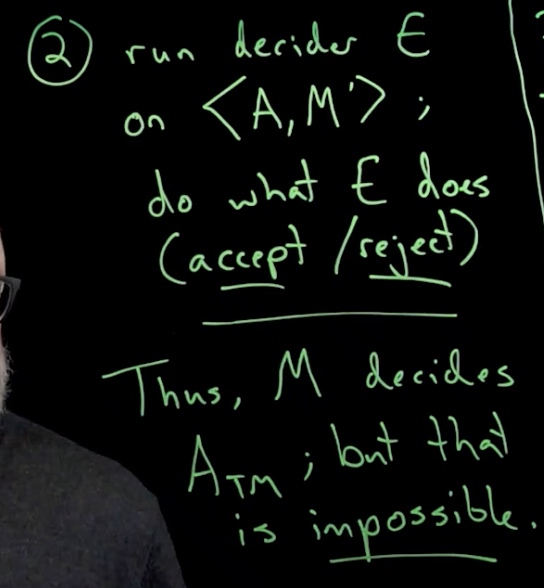 ② run decider E
on <A, M'> ;
do what E does
(accept / reject)
Thus, M decides
A_TM ; but that
is impossible.